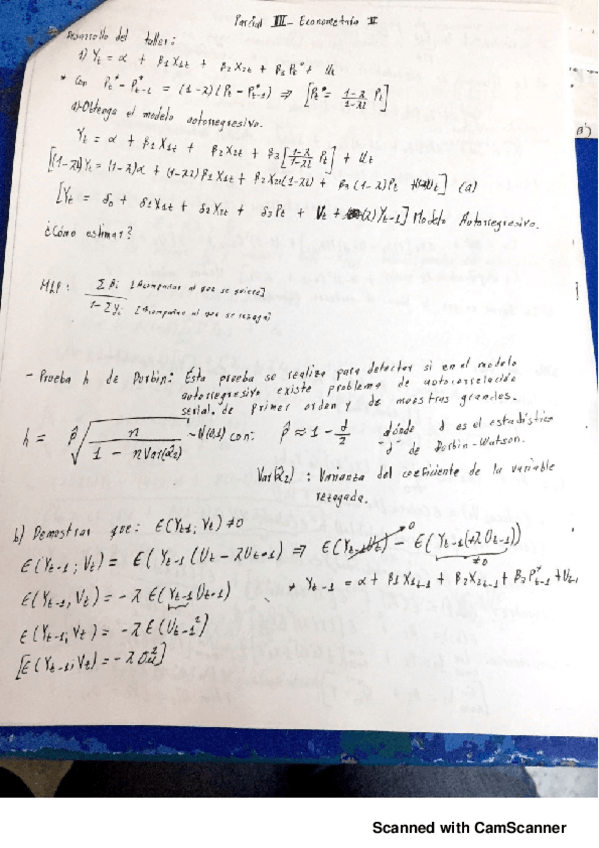 Parcial III - Econometría II
Desarrollo del taller:
1) Yt = α + β1X1t + β2X2t + β3Pt* + Ut
* Con Pt* - P*t-1 = (1-λ)(Pt - P*t-1) ⇒ [Pt* = 1-λ/1-λL Pt]
a) Obtenga el modelo autorregresivo.
Yt = α + β1X1t + β2X2t + β3[1-λ/1-λL Pt] + Ut
[(1-λL)Yt = (1-λ)α + (1-λL)β1X1t + β2X2t(1-λL) + β3(1-λ)Pt + (1-λL)Ut] (a)
[Yt = δ0 + δ1X1t + δ2X2t + δ3Pt + Vt + (λ)Yt-1] Modelo Autorregresivo.
¿Cómo estimar?
MLP: Σβi [Acompañan al que se quiere]
1-Σγi [Acompañan al que se rezaga]
- Prueba h de Durbin: Esta prueba se realiza para detectar si en el modelo
autorregresivo existe problema de autocorrelación
serial, de primer orden y de muestras grandes.
h = ρ̂ √(n / 1 - nVar(α̂2)) ~N(0,1) con: ρ̂ ≈ 1 - d/2 dónde d es el estadístico
"d" de Durbin-Watson.
Var(α̂2) : Varianza del coeficiente de la variable
rezagada.
b) Demostrar que: E(Yt-1; Vt) ≠ 0
E(Yt-1; Vt) = E(Yt-1(Ut - λUt-1) ⇒ E(Yt-1Ut) - E(Yt-1(+λUt-1))
0
≠0
E(Yt-1, Vt) = -λ E(Yt-1Ut-1)
* Yt-1 = α + β1X1t-1 + β2X2t-1 + β3P*t-1 + Ut-1
E(Yt-1; Vt) = -λ E(Ut-1²)
[E(Yt-1; Vt) = -λσu²]
Scanned with CamScanner